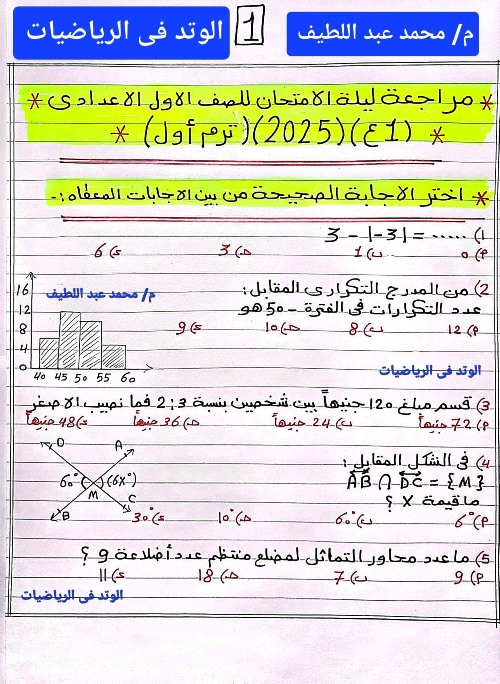 م/ محمد عبد اللطيف 1 الوتد فى الرياضيات
* مراجعة ليلة الامتحان للصف الاول الاعدادى *
* (1ع)(2025)(ترم أول) *
* اختر الاجابة الصحيحة من بين الاجابات المعطاه:-
1) 3 - |-3| = ......
م) 0 ب) 1 حـ) 3 ء) 6
2) من المدرج التكرارى المقابل:
عدد التكرارات فى الفترة 50- هو
م) 12 ب) 8 حـ) 10 ء) 9
م/ محمد عبد اللطيف
16
12
8
4
0
40 45 50 55 60
الوتد فى الرياضيات
3) قسم مبلغ 120 جنيهاً بين شخصين بنسبة 3:2 فما نصيب الاصغر
م) 72 جنيهاً ب) 24 جنيهاً حـ) 36 جنيهاً ء) 48 جنيهاً
4) فى الشكل المقابل:
AB ∩ DC = {M}
ما قيمة X ؟
D A
60° (6X°)
M
B C
م) 6° ب) 60° حـ) 10° ء) 30°
5) ما عدد محاور التماثل لمضلع منتظم عدد أضلاعة 9 ؟
م) 9 ب) 7 حـ) 18 ء) 11
الوتد فى الرياضيات